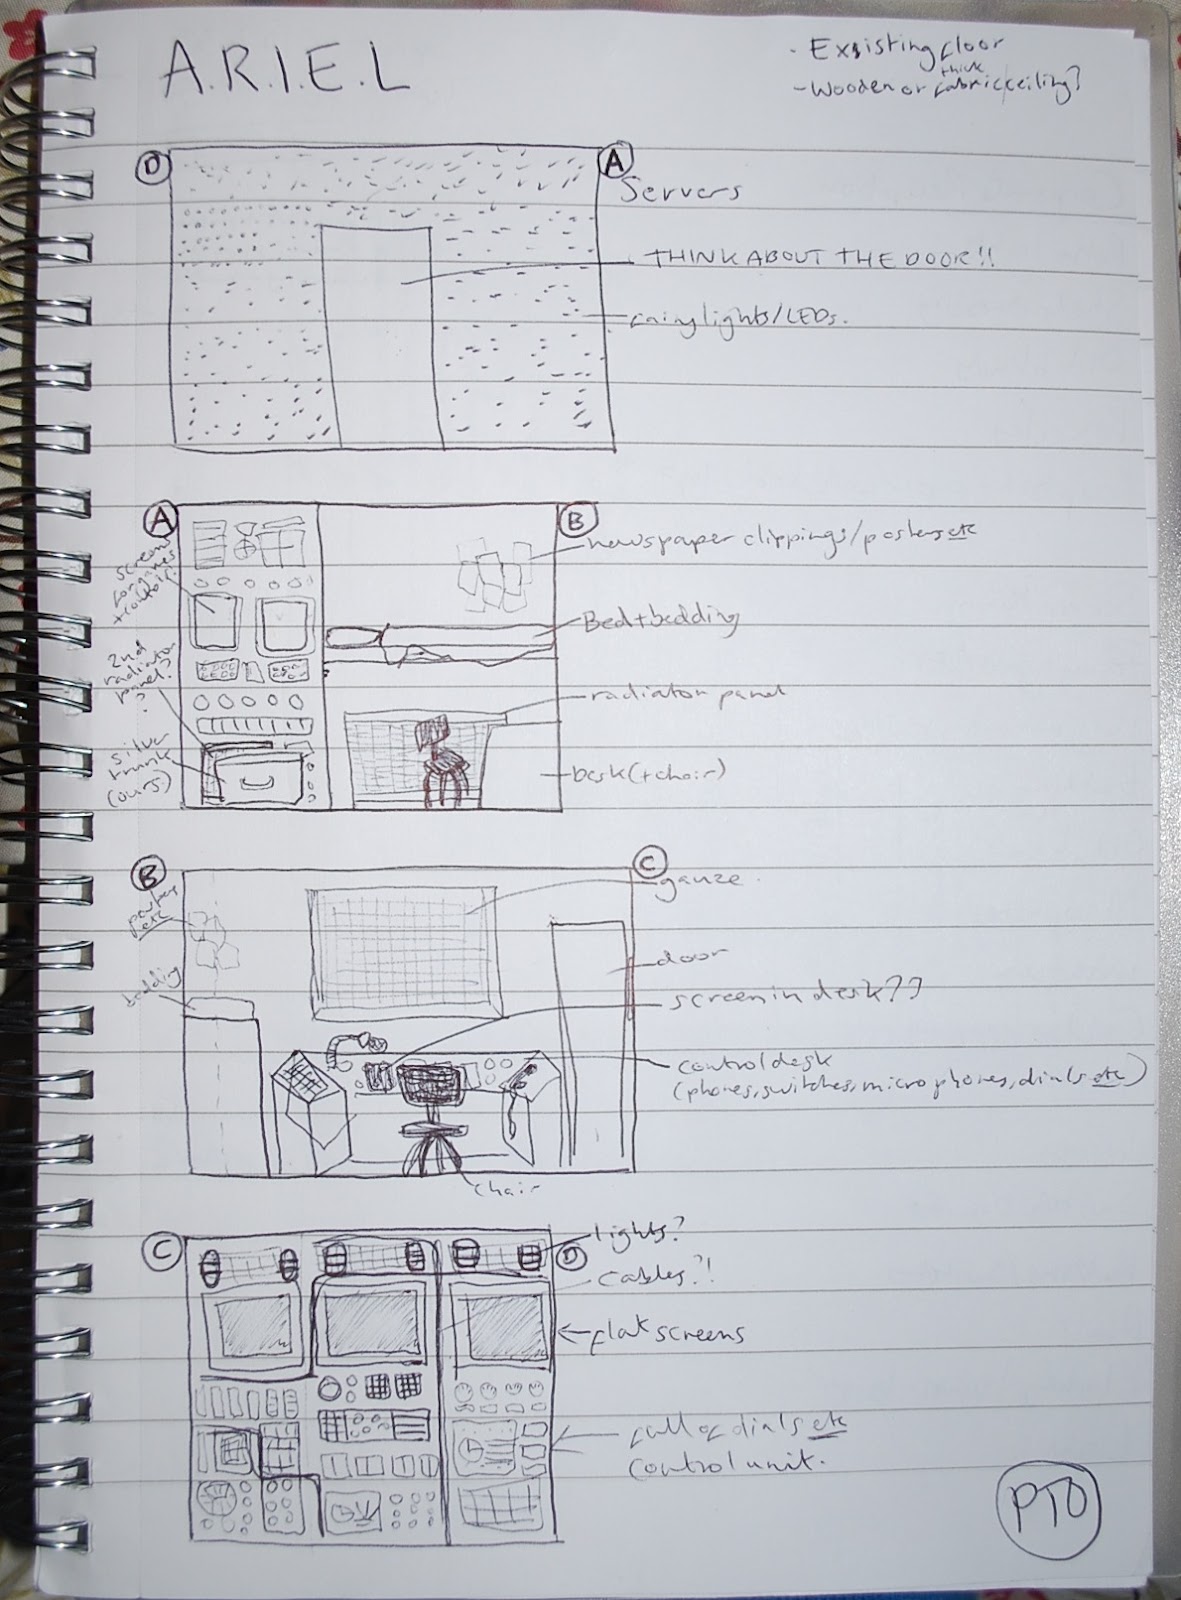 A.R.I.E.L
- Exsisting floor
- Wooden or thick fabric ceiling?
D
A
Servers
THINK ABOUT THE DOOR!!
fairy lights/LEDs.
A
B
newspaper clippings/posters etc
screens
+control?
Bed+bedding
2nd
radiator
panel?
?
radiator panel
silver
trunk
(ours?)
Desk(+chair)
B
C
gauze.
posters
etc
door
bedding
screen in desk??
control desk
(phones, switches, microphones, dials etc)
chair
C
D
lights?
cables?!
flat screens
full of dials etc
control unit.
PTO